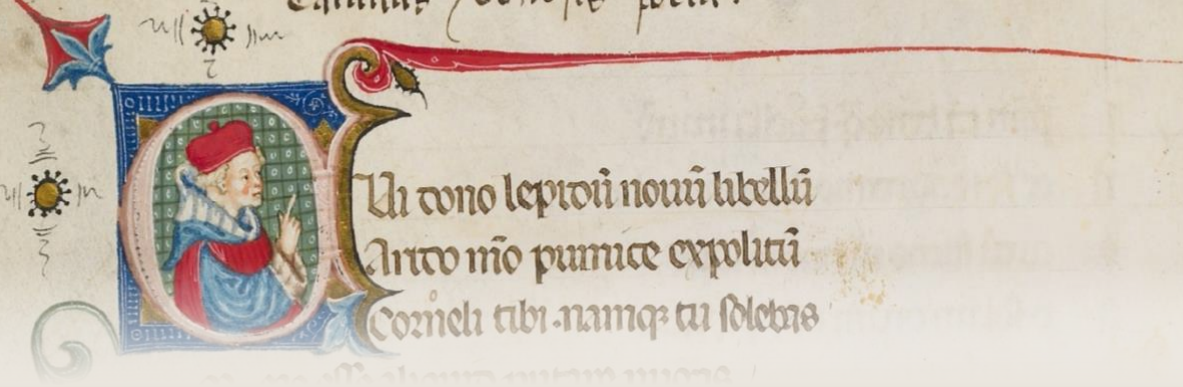 Qui dono lepidū nouū libellū
Arido mō pumice expolitū
Corneli tibi .namqꝫ tu solebas